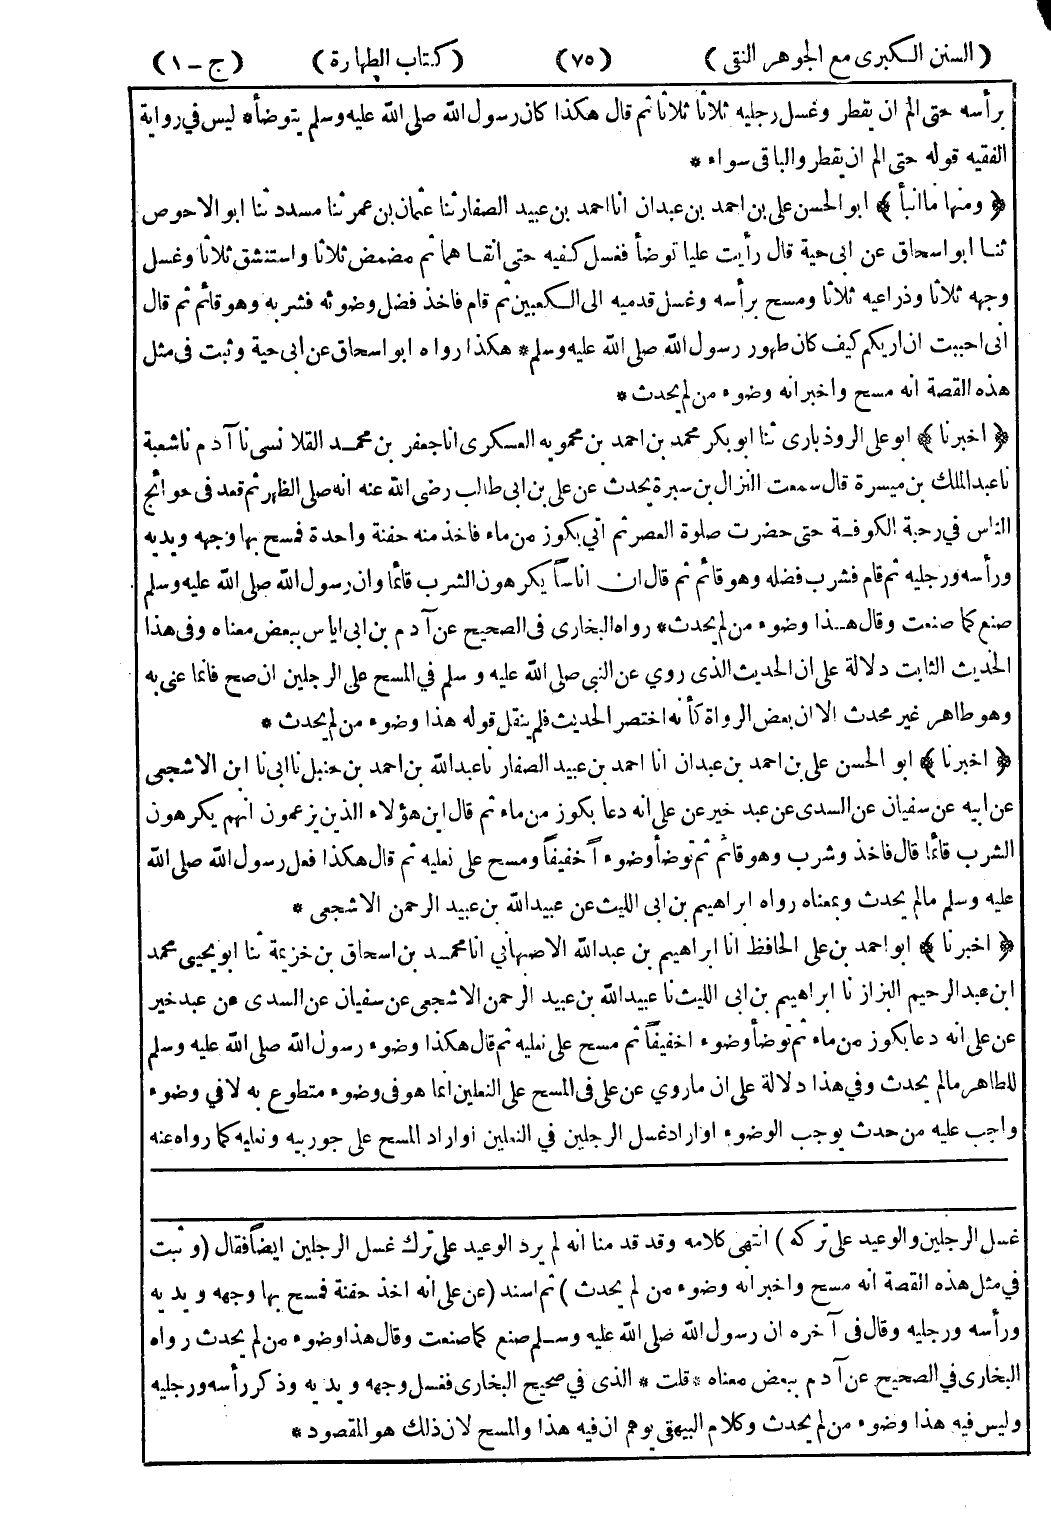 (السنن الكبرى مع الجوهر النقى) (٧٥) (كتاب الطهارة) (ج - ١)
برأسه حتى الم ان يقطر وغسل رجليه ثلاثا ثلاثا ثم قال هكذا كان رسول الله صلى الله عليه وسلم يتوضأ* ليس فى رواية
الفقيه قوله حتى الم ان يقطر والباقى سواء *
﴿ ومنها ما انبأ ﴾ ابو الحسن على بن احمد بن عبدان انا احمد بن عبيد الصفار ثنا عثمان بن عمر ثنا مسدد ثنا ابو الاحوص
ثنا ابو اسحاق عن ابى حية قال رأيت عليا توضأ فغسل كفيه حتى انقا هما ثم مضمض ثلاثا واستنشق ثلاثا وغسل
وجهه ثلاثا وذراعيه ثلاثا ومسح برأسه وغسل قدميه الى الكعبين ثم قام فاخذ فضل وضوئه فشربه وهو قائم ثم قال
انى احببت ان اريكم كيف كان طهور رسول الله صلى الله عليه وسلم* هكذا رواه ابو اسحاق عن ابى حية وثبت فى مثل
هذه القصة انه مسح واخبر انه وضوء من لم يحدث *
﴿ اخبرنا ﴾ ابو على الروذبارى ثنا ابو بكر محمد بن احمد بن محمويه العسكرى انا جعفر بن محمد القلانسى نا آدم نا شعبة
نا عبد الملك بن ميسرة قال سمعت النزال بن سبرة يحدث عن على بن ابى طالب رضى الله عنه انه صلى الظهر ثم قعد فى حوائج
الناس في رحبة الكوفة حتى حضرت صلوة العصر ثم اتي بكوز من ماء فاخذ منه حفنة واحدة فمسح بها وجهه ويديه
ورأسه ورجليه ثم قام فشرب فضله وهو قائم ثم قال ان اناساً يكرهون الشرب قائما وان رسول الله صلى الله عليه وسلم
صنع كما صنعت وقال هذا وضوء من لم يحدث* رواه البخارى فى الصحيح عن آدم بن ابى اياس ببعض معناه وفى هذا
الحديث الثابت دلالة على ان الحديث الذى روي عن النبى صلى الله عليه و سلم في المسح على الرجلين ان صح فانما عنى به
وهو طاهر غير محدث الا ان بعض الرواة كأنه اختصر الحديث فلم ينقل قوله هذا وضوء من لم يحدث *
﴿ اخبرنا ﴾ ابو الحسن على بن احمد بن عبدان انا احمد بن عبيد الصفار نا عبد الله بن احمد بن حنبل نا ابى نا ابن الاشجعى
عن ابيه عن سفيان عن السدى عن عبد خير عن على انه دعا بكوز من ماء ثم قال اين هؤلاء الذين يزعمون انهم يكرهون
الشرب قائما قال فاخذ وشرب وهو قائم ثم توضأ وضوءاً خفيفاً ومسح على نعليه ثم قال هكذا فعل رسول الله صلى الله
عليه وسلم مالم يحدث وبمعناه رواه ابراهيم بن ابى الليث عن عبيد الله بن عبيد الرحمن الاشجعى *
﴿ اخبرنا ﴾ ابو احمد بن على الحافظ انا ابراهيم بن عبد الله الاصبهاني انا محمد بن اسحاق بن خزيمة ثنا ابو يحيى محمد
ابن عبد الرحيم البزاز نا ابراهيم بن ابى الليث نا عبيد الله بن عبيد الرحمن الاشجعى عن سفيان عن السدى عن عبد خير
عن على انه دعا بكوز من ماء ثم توضأ وضوء اخفيفاً ثم مسح على نعليه ثم قال هكذا وضوء رسول الله صلى الله عليه وسلم
للطاهر مالم يحدث وفي هذا دلالة على ان ماروي عن على فى المسح على النعلين انما هو فى وضوء متطوع به لا في وضوء
واجب عليه من حدث يوجب الوضوء او اراد غسل الرجلين في النعلين او اراد المسح على جوربيه ونعليه كما رواه عنه
غسل الرجلين والوعيد على تركه) انتهى كلامه وقد قد منا انه لم يرد الوعيد على ترك غسل الرجلين ايضاً فقال (وثبت
في مثل هذه القصة انه مسح واخبر انه وضوء من لم يحدث) ثم اسند (عن على انه اخذ حفنة فمسح بها وجهه ويديه
ورأسه ورجليه وقال فى آخره ان رسول الله صلى الله عليه وسلم صنع كما صنعت وقال هذا وضوء من لم يحدث رواه
البخارى في الصحيح عن آدم ببعض معناه * قلت * الذى في صحيح البخارى فغسل وجهه ويديه وذكر رأسه ورجليه
وليس فيه هذا وضوء من لم يحدث وكلام البيهقى يوهم ان فيه هذا والمسح لان ذلك هو المقصود *